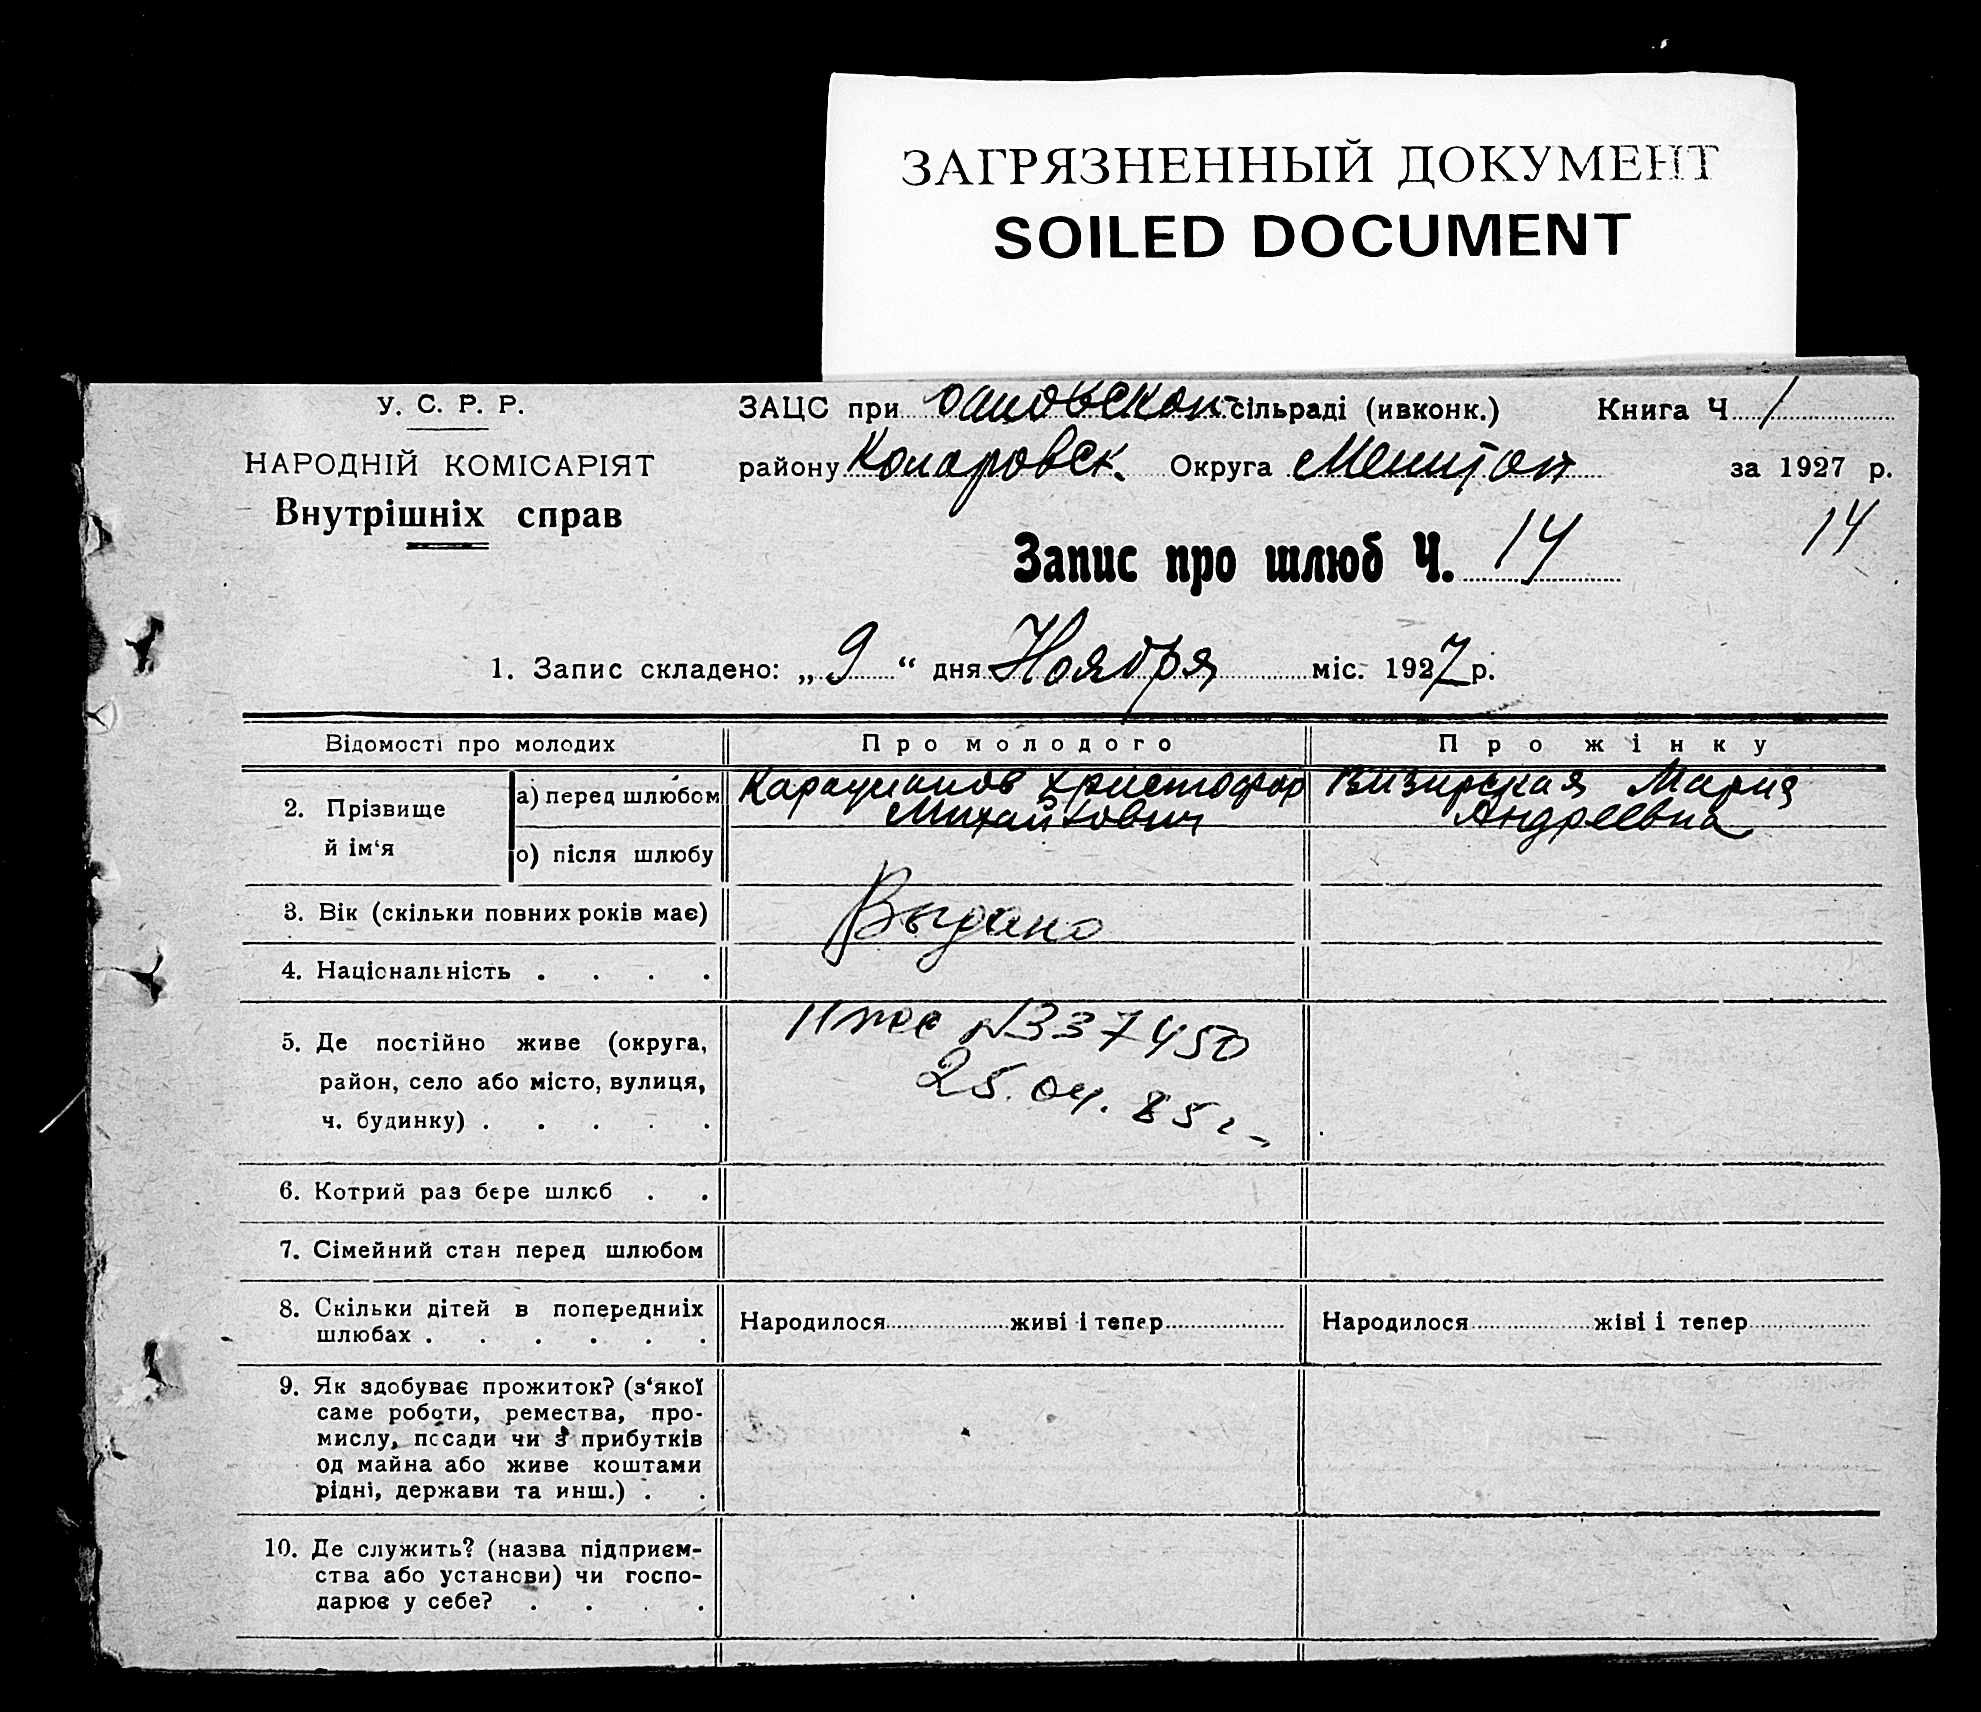 ЗАГРЯЗНЕННЫЙ ДОКУМЕНТ
SOILED DOCUMENT
У. С. Р. Р.
НАРОДНІЙ КОМІСАРІЯТ
Внутрішніх справ
ЗАЦС при сільраді (ивконк.) Книга Ч. 1
району Коларовск. Округа Мелитоп за 1927 р.
Запис про шлюб Ч. 14 14
1. Запис складено: „ 9 “ дня Ноября міс. 1927 р.
Відомості про молодих Про молодого Про жінку
2. Прізвище й ім‘я
а) перед шлюбом Христофор Михайлович Визирская Мария Андреевна
о) після шлюбу
3. Вік (скільки повних років має) Выдано
4. Національність . . . .
5. Де постійно живе (округа, №337450
район, село або місто, вулиця, 25.04.85г.
ч. будинку) . . . . .
6. Котрий раз бере шлюб . .
7. Сімейний стан перед шлюбом
8. Скільки дітей в попередниіх
шлюбах . . . . . .
Народилося живі і тепер Народилося жіві і тепер
9. Як здобуває прожиток? (з‘якої
саме роботи, ремества, про-
мислу, посади чи з прибутків
од майна або живе коштами
рідні, держави та инш.) . .
10. Де служить? (назва підприєм-
ства або установи) чи госпо-
дарює у себе? . . . .